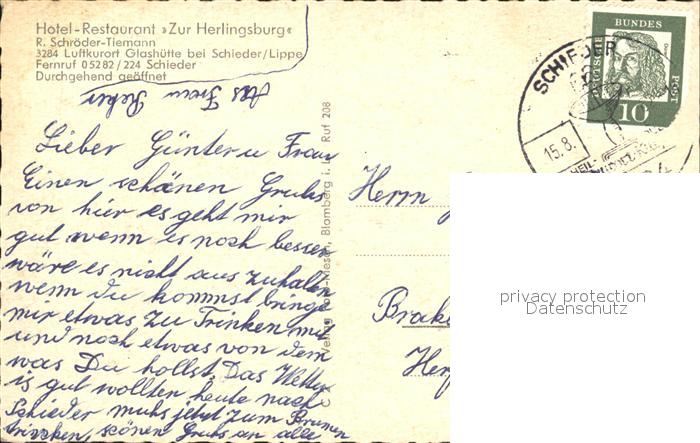 Hotel-Restaurant »Zur Herlingsburg«
R. Schröder-Tiemann
3284 Luftkurort Glashütte bei Schieder/Lippe
Fernruf 0 52 82 / 224 Schieder
Durchgehend geöffnet
Aus Frau
Lieber Günter u Frau
Einen schönen Gruhs
von hier es geht mir
gut wenn es noch besser
wäre es nicht aus zuhalten
wenn du kommst bringe
mir etwas zu Trinken mit
und noch etwas von dem
was Du hollst. Das Wetter
is gut wollten heute nach
Schieder muhs jetzt zum Brunnen
trinken, schönen Gruhs an alle
Blomberg i. L. Ruf 208
Herrn
Brake
SCHIEDER
15.8.
HEIL-
DEUTSCHE BUNDESPOST
10
privacy protection
Datenschutz